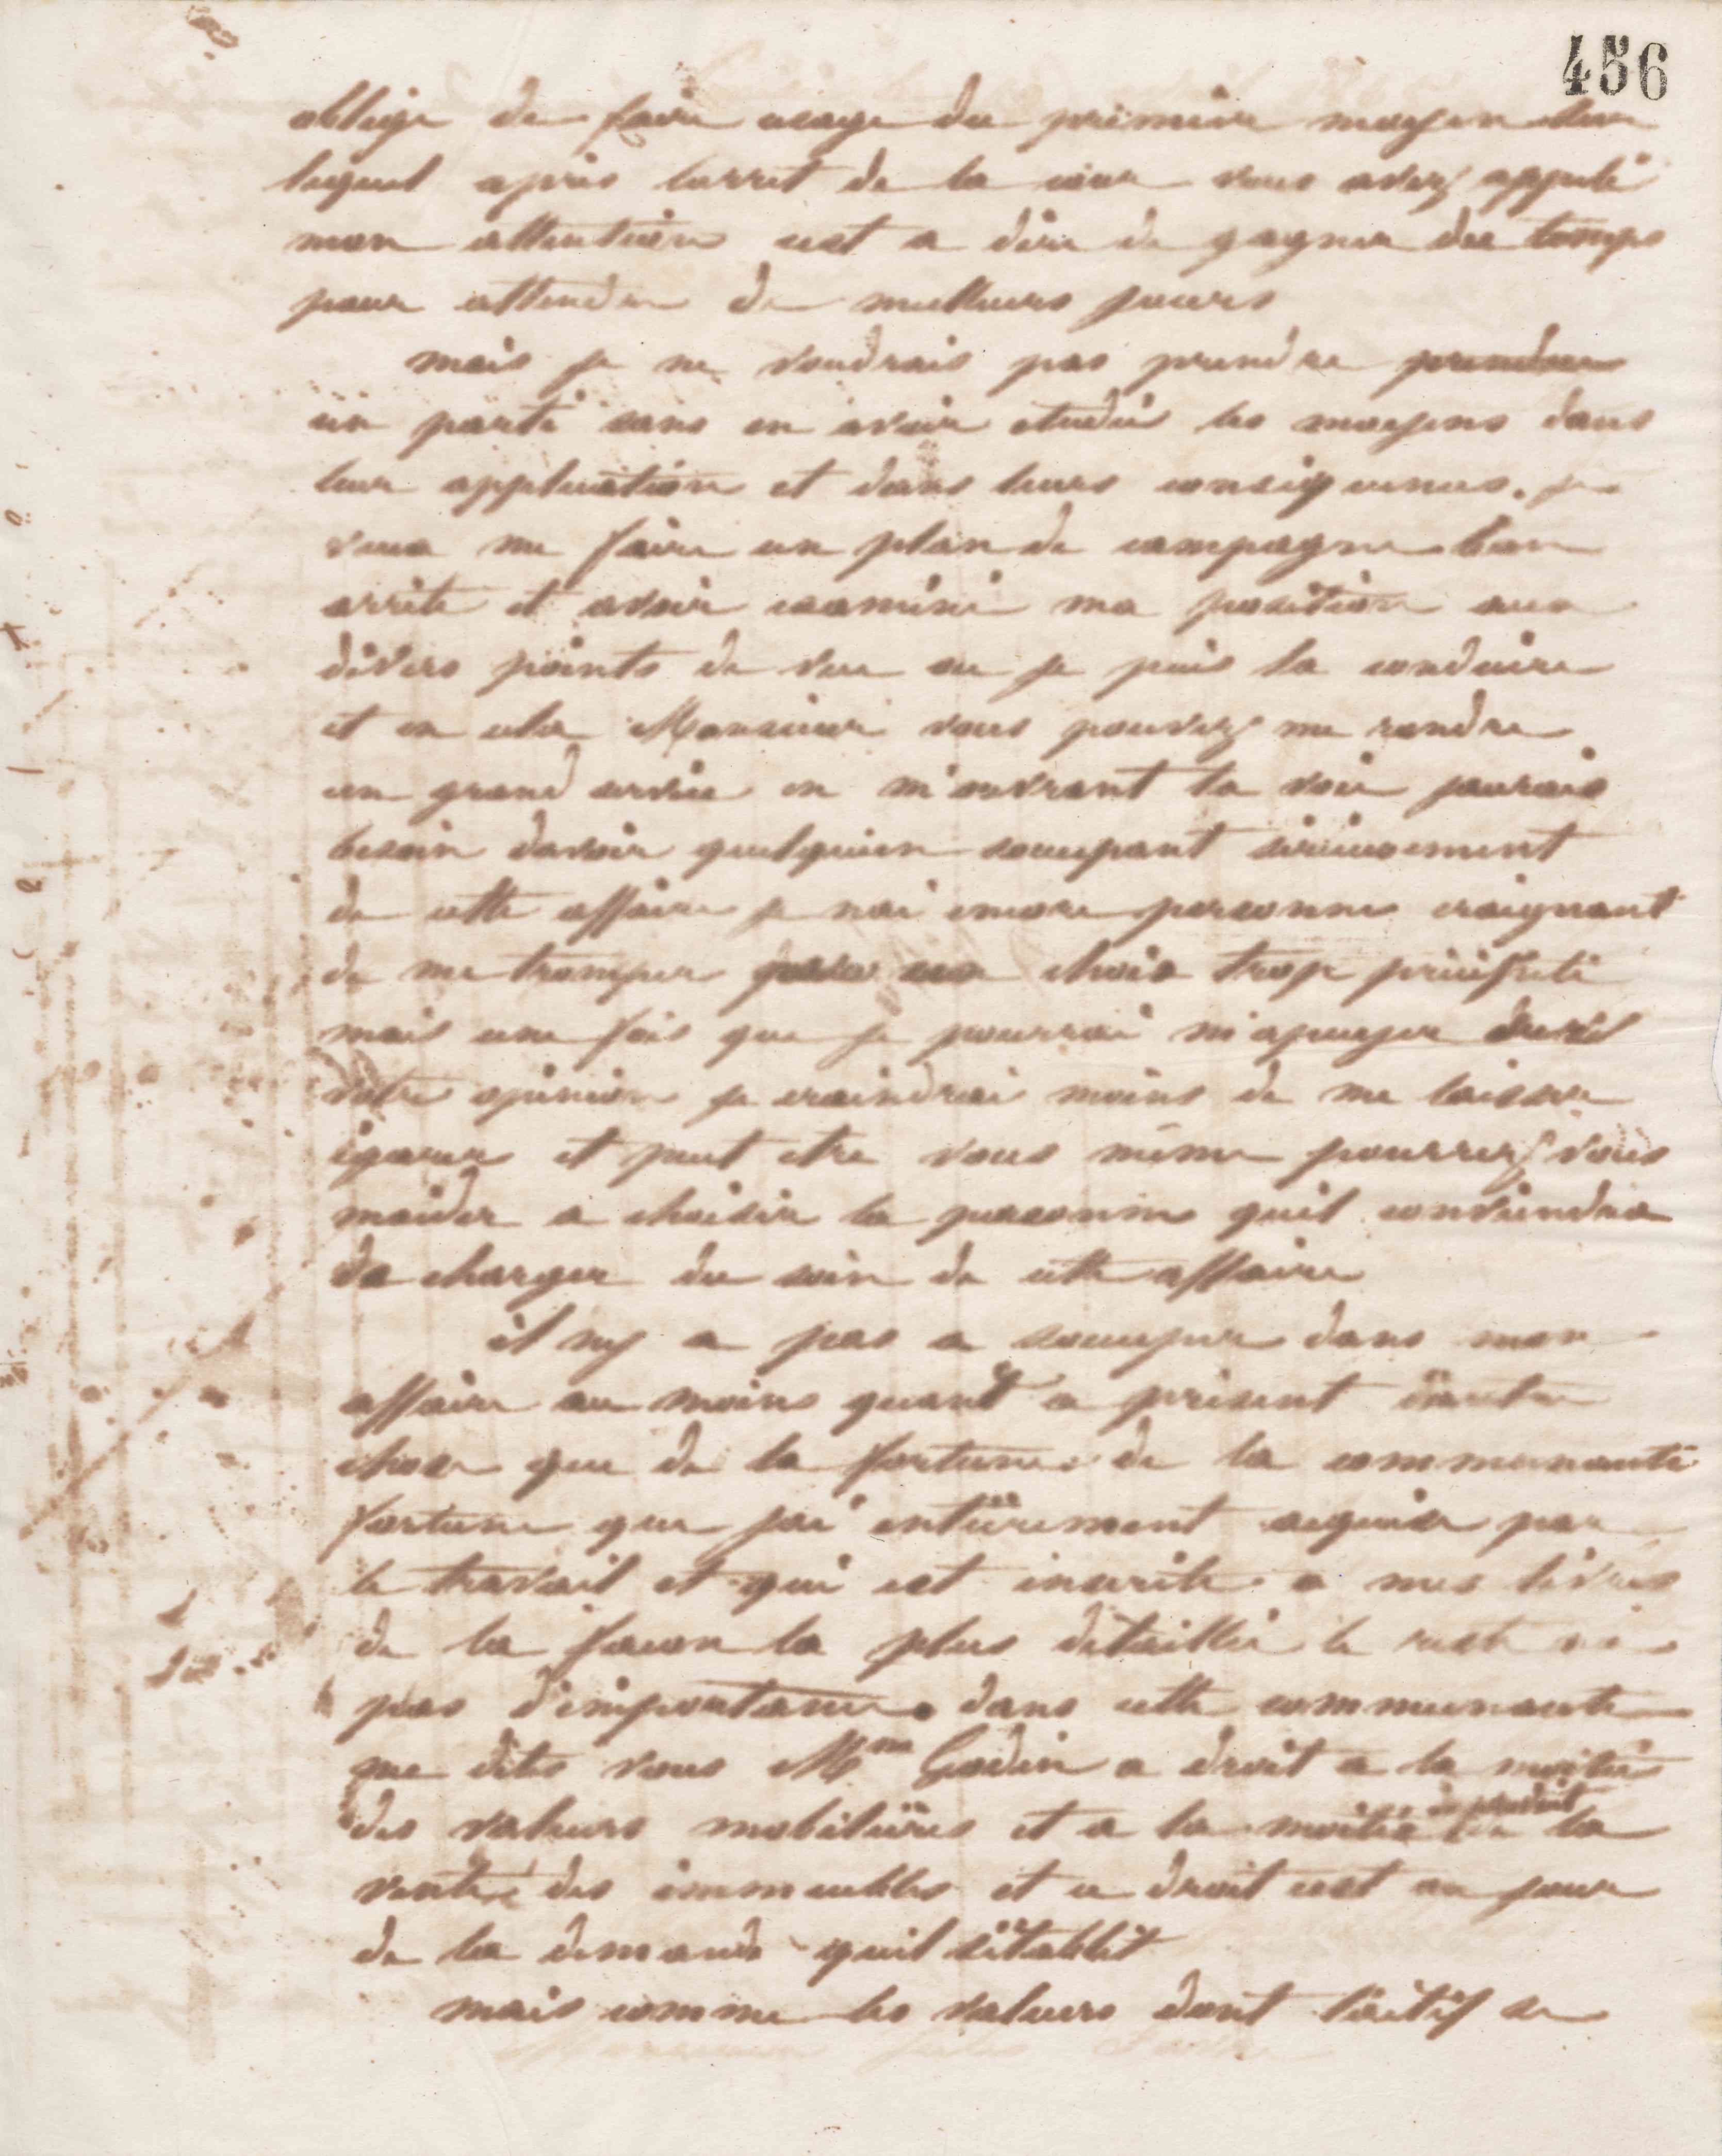 456
obligé de faire usage du premier moyen sur
lequel apres larret de la cour vous avez appelé
mon attention cest a dire de gagner du temps
pour attendre de meilleurs jours
mais je ne voudrais pas prendre prendre
un parti sans en avoir etudié les moyens dans
leur application et dans leurs consequences. je
veux me faire un plan de campagne bien
arrêté et avoir examiné ma position aux
divers points de vue ou je puis la conduire
et en cela Monsieur vous pouvez me rendre
un grand service en m'ouvrant la voie jaurais
besoin davoir quelquun soccupant sérieusement
de cette affaire je nai encore personne craignant
de me tromper par un choix trop précipité
mais une fois que je pourrai m'apuyer sur
votre opinion je craindrai moins de me laisser
égarer et peut etre vous même pourrez vous
maider a choisir la personne quil conviendra
de charger du soin de cette affaire
il ny a pas a soccuper dans mon
affaire au moins quant a présent dautre
chose que de la fortune de la communauté
fortune que jai entièrement acquise par
le travail et qui est inscrite a mes livres
de la facon la plus détaillée le reste na
pas d'importance. dans cette communauté
me dites vous Mme Godin a droit a la moitié
des valeurs mobilières et a la moitié du produit de la
vente des immeubles et ce droit cest au jour
de la demande quil sétablit
mais comme les valeurs dont lactif se